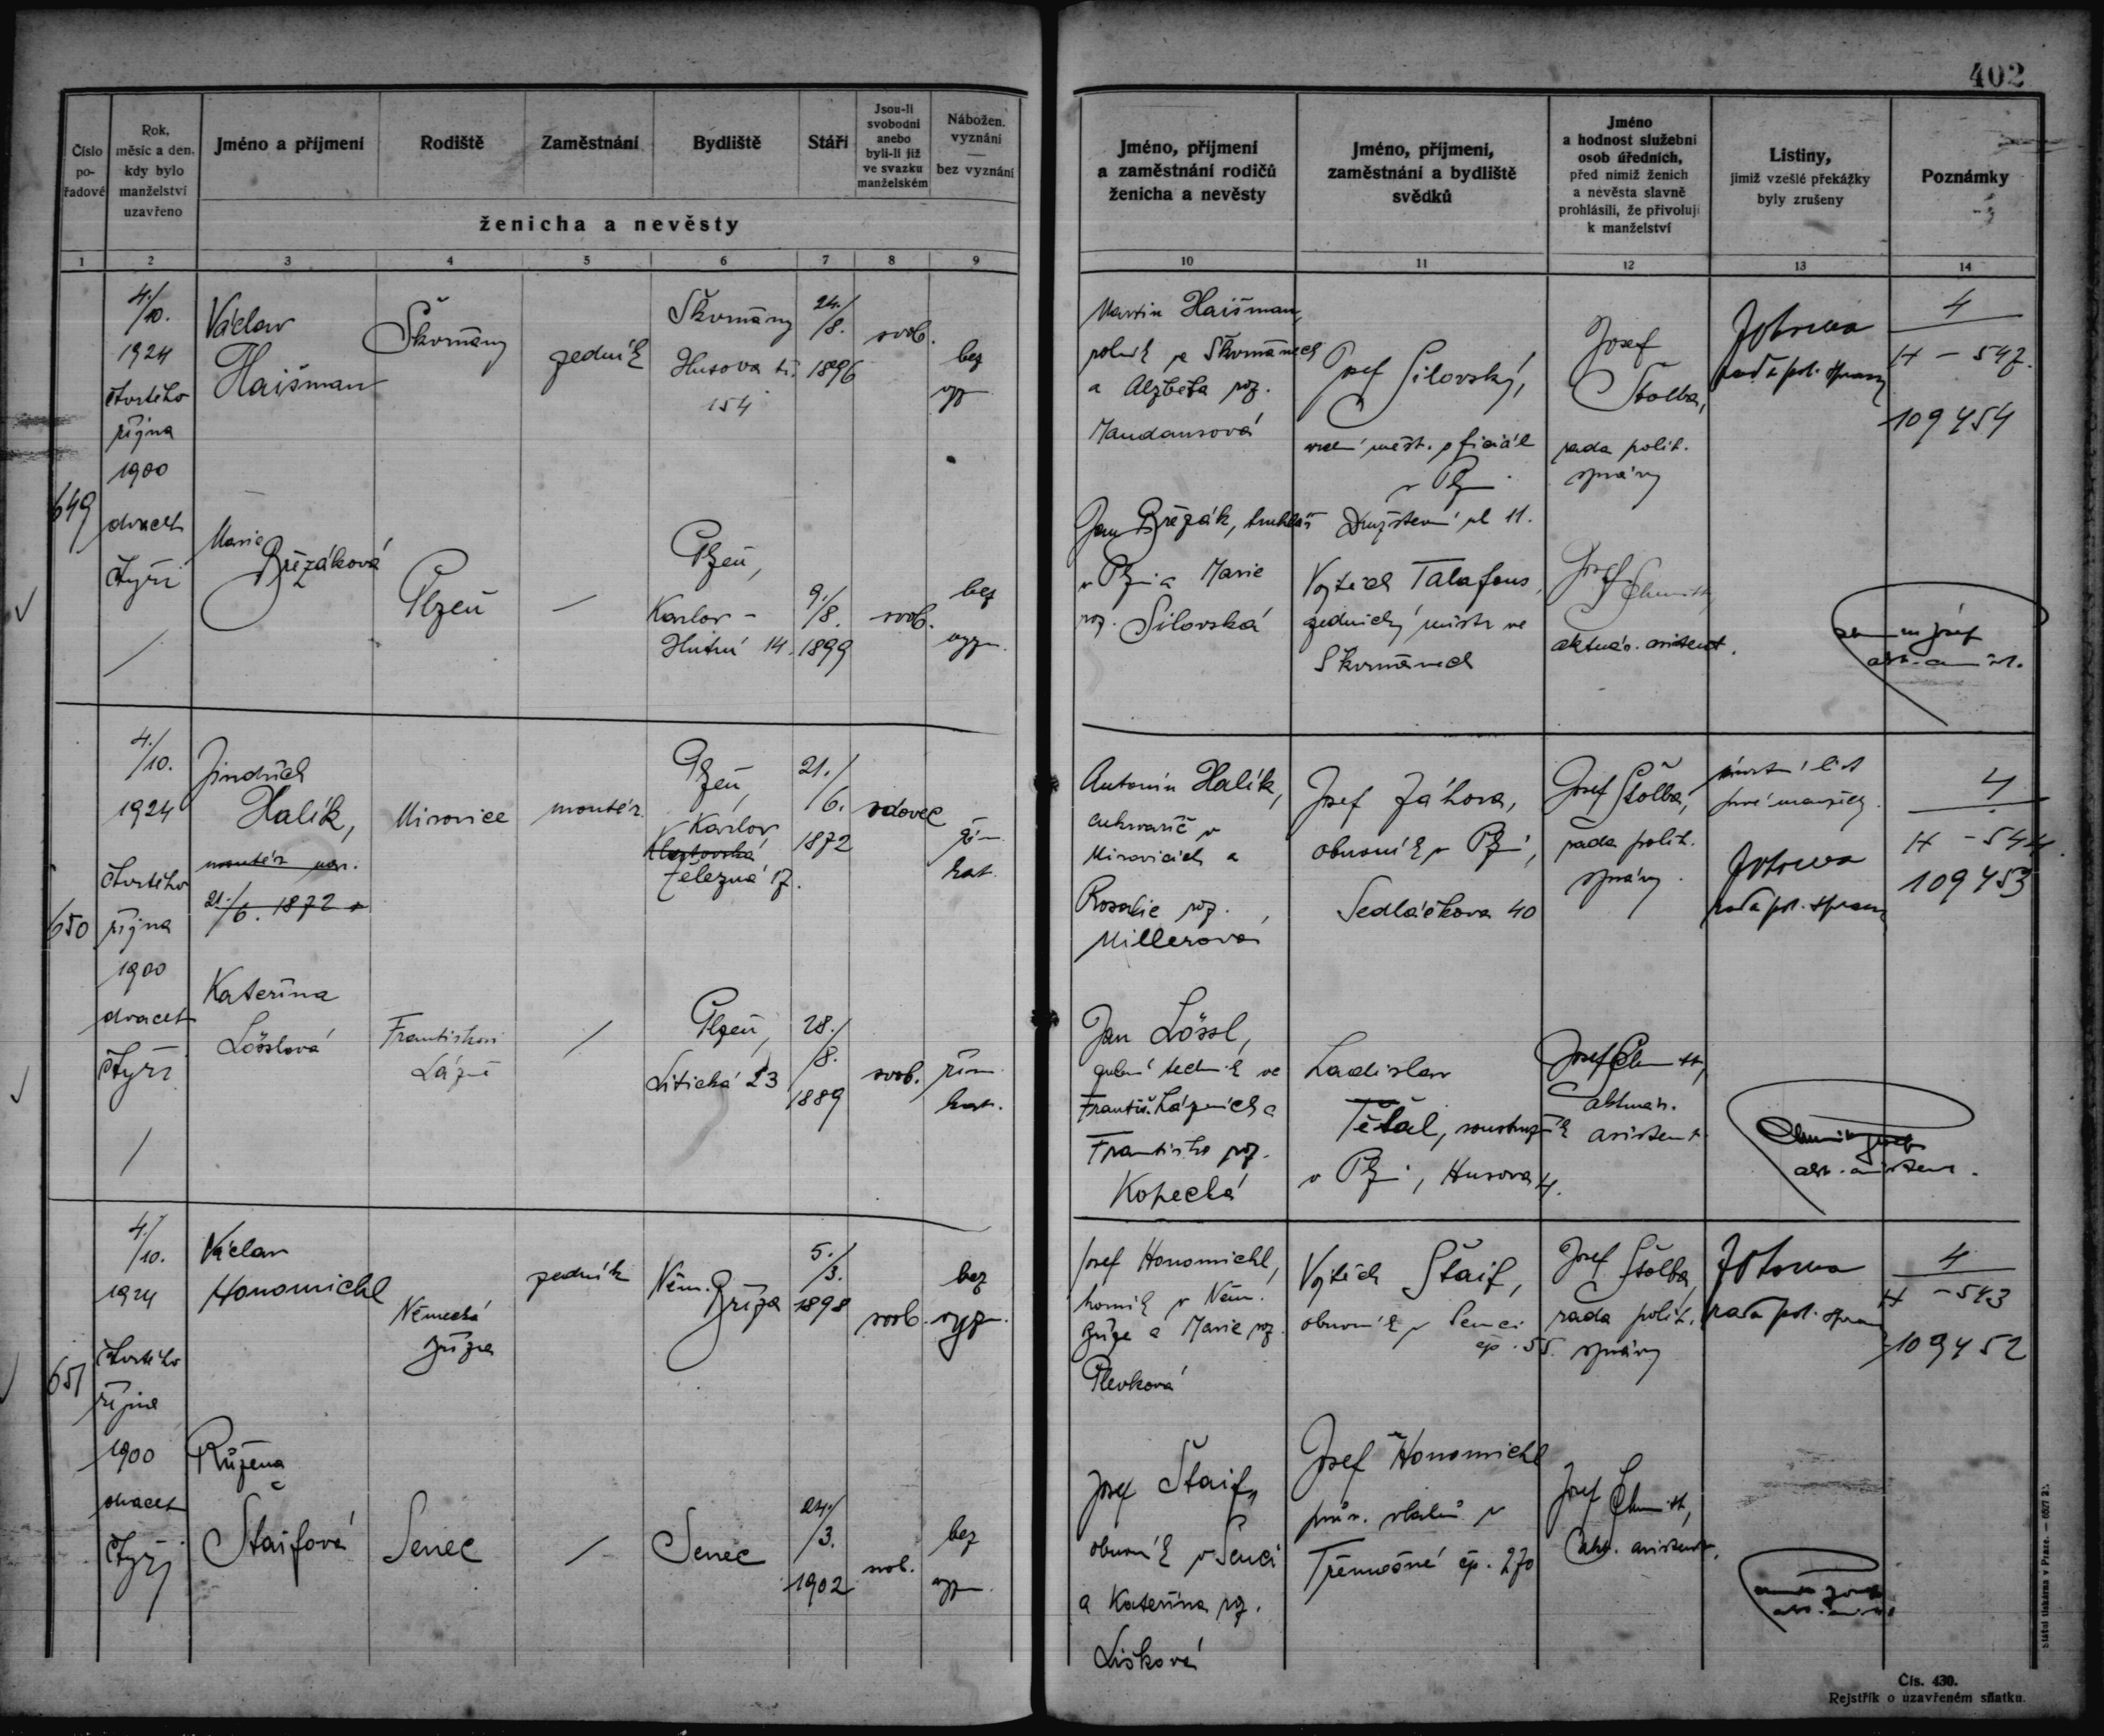 402
Číslo
po-
řadové
Rok,
měsíc a den,
kdy bylo
manželství
uzavřeno
Jméno a příjmení
Rodiště
Zaměstnání
Bydliště
Stáří
Jsou-li
svobodni
anebo
byli-li již
ve svazku
manželském
Nábožen.
vyznání
—
bez vyznání
ženicha a nevěsty
Jméno, příjmení
a zaměstnání rodičů
ženicha a nevěsty
Jméno, příjmení,
zaměstnání a bydliště
svědků
Jméno
a hodnost služební
osob úředních,
před nimiž ženich
a nevěsta slavně
prohlásili, že přivolují
k manželství
Listiny,
jimiž vzešlé překážky
byly zrušeny
Poznámky
1 2 3 4 5 6 7 8 9 10 11 12 13 14
649
4./10.
1924
čtvrtého
října
1900
dvacet
čtyři
Václav
Haišman
Škvrňany
zedník
Škvrňany
Husova tř.
154
24./8.
1896
svob.
bez
vyzn.
Martin Haišman,
rolník ve Škvrňanech
a Alžběta roz.
Maudansová
Josef Silovský,
vrch. měst. oficiál
v Plzni
Družstevní ul 11.
Josef
Štolba,
rada polit.
správy
rada pol. správy
4
H - 547.
109454
Marie
Břízáková
Plzeň
—
Plzeň,
Karlov -
Hutní 14.
9./8.
1899
svob.
bez
vyzn.
Jan Břízák, truhlář
v Plzni a Marie
roz. Silovská
Vojtěch Talafous,
zednický mistr ve
Škvrňanech
Josef
aktuár. asistent.
650
4./10.
1924
čtvrtého
října
1900
dvacet
čtyři
Jindřich
Halík,
montér nar.
21./6. 1872
Mirovice
montér
Plzeň,
Karlov
Klatovská
Železná 17.
21./6.
1872
vdovec
řím.
kat.
Antonín Halík,
cukrovarič v
Mirovicích a
Rosalie roz.
Millerová
Josef Záhora,
obuvník v Plzni,
Sedláčkova 40
Josef Štolba,
rada polit.
správy.
úmrtní list
prvé manželky.
rada pol. správy
4
H - 544.
109453
Kateřina
Lösslová
Františkovi
Lázně
—
Plzeň,
Litická 23
28./8.
1889
svob.
řím.
kat.
Jan Lössl,
zubní technik ve
Františ. Lázních a
Františka roz.
Kopecká
Ladislav
Těšal, soustružník
v Plzni, Husova 4.
Josef
aktuár.
asistent
akt. asistent.
651
4./10.
1924
čtvrtého
října
1900
dvacet
čtyři
Václav
Honomichl
Německá
Bříza
zedník
Něm. Bříza
5./3.
1898
svob.
bez
vyzn.
Josef Honomichl,
horník v Něm.
Bříze a Marie roz.
Plevková
Vojtěch Štaif,
obuvník v Senci
čp. 55.
Josef Štolba,
rada polit.
správy
rada pol. správy
4
H - 543
109452
Růžena
Štaifová
Senec
—
Senec
24./3.
1902
svob.
bez
vyzn.
Josef Štaif,
obuvník v Senci
a Kateřina roz.
Lišková
Josef Honomichl
v
Třemošné čp. 270
Josef
akt. asistent.
Státní tiskárna v Praze.
Čís. 430.
Rejstřík o uzavřeném sňatku.